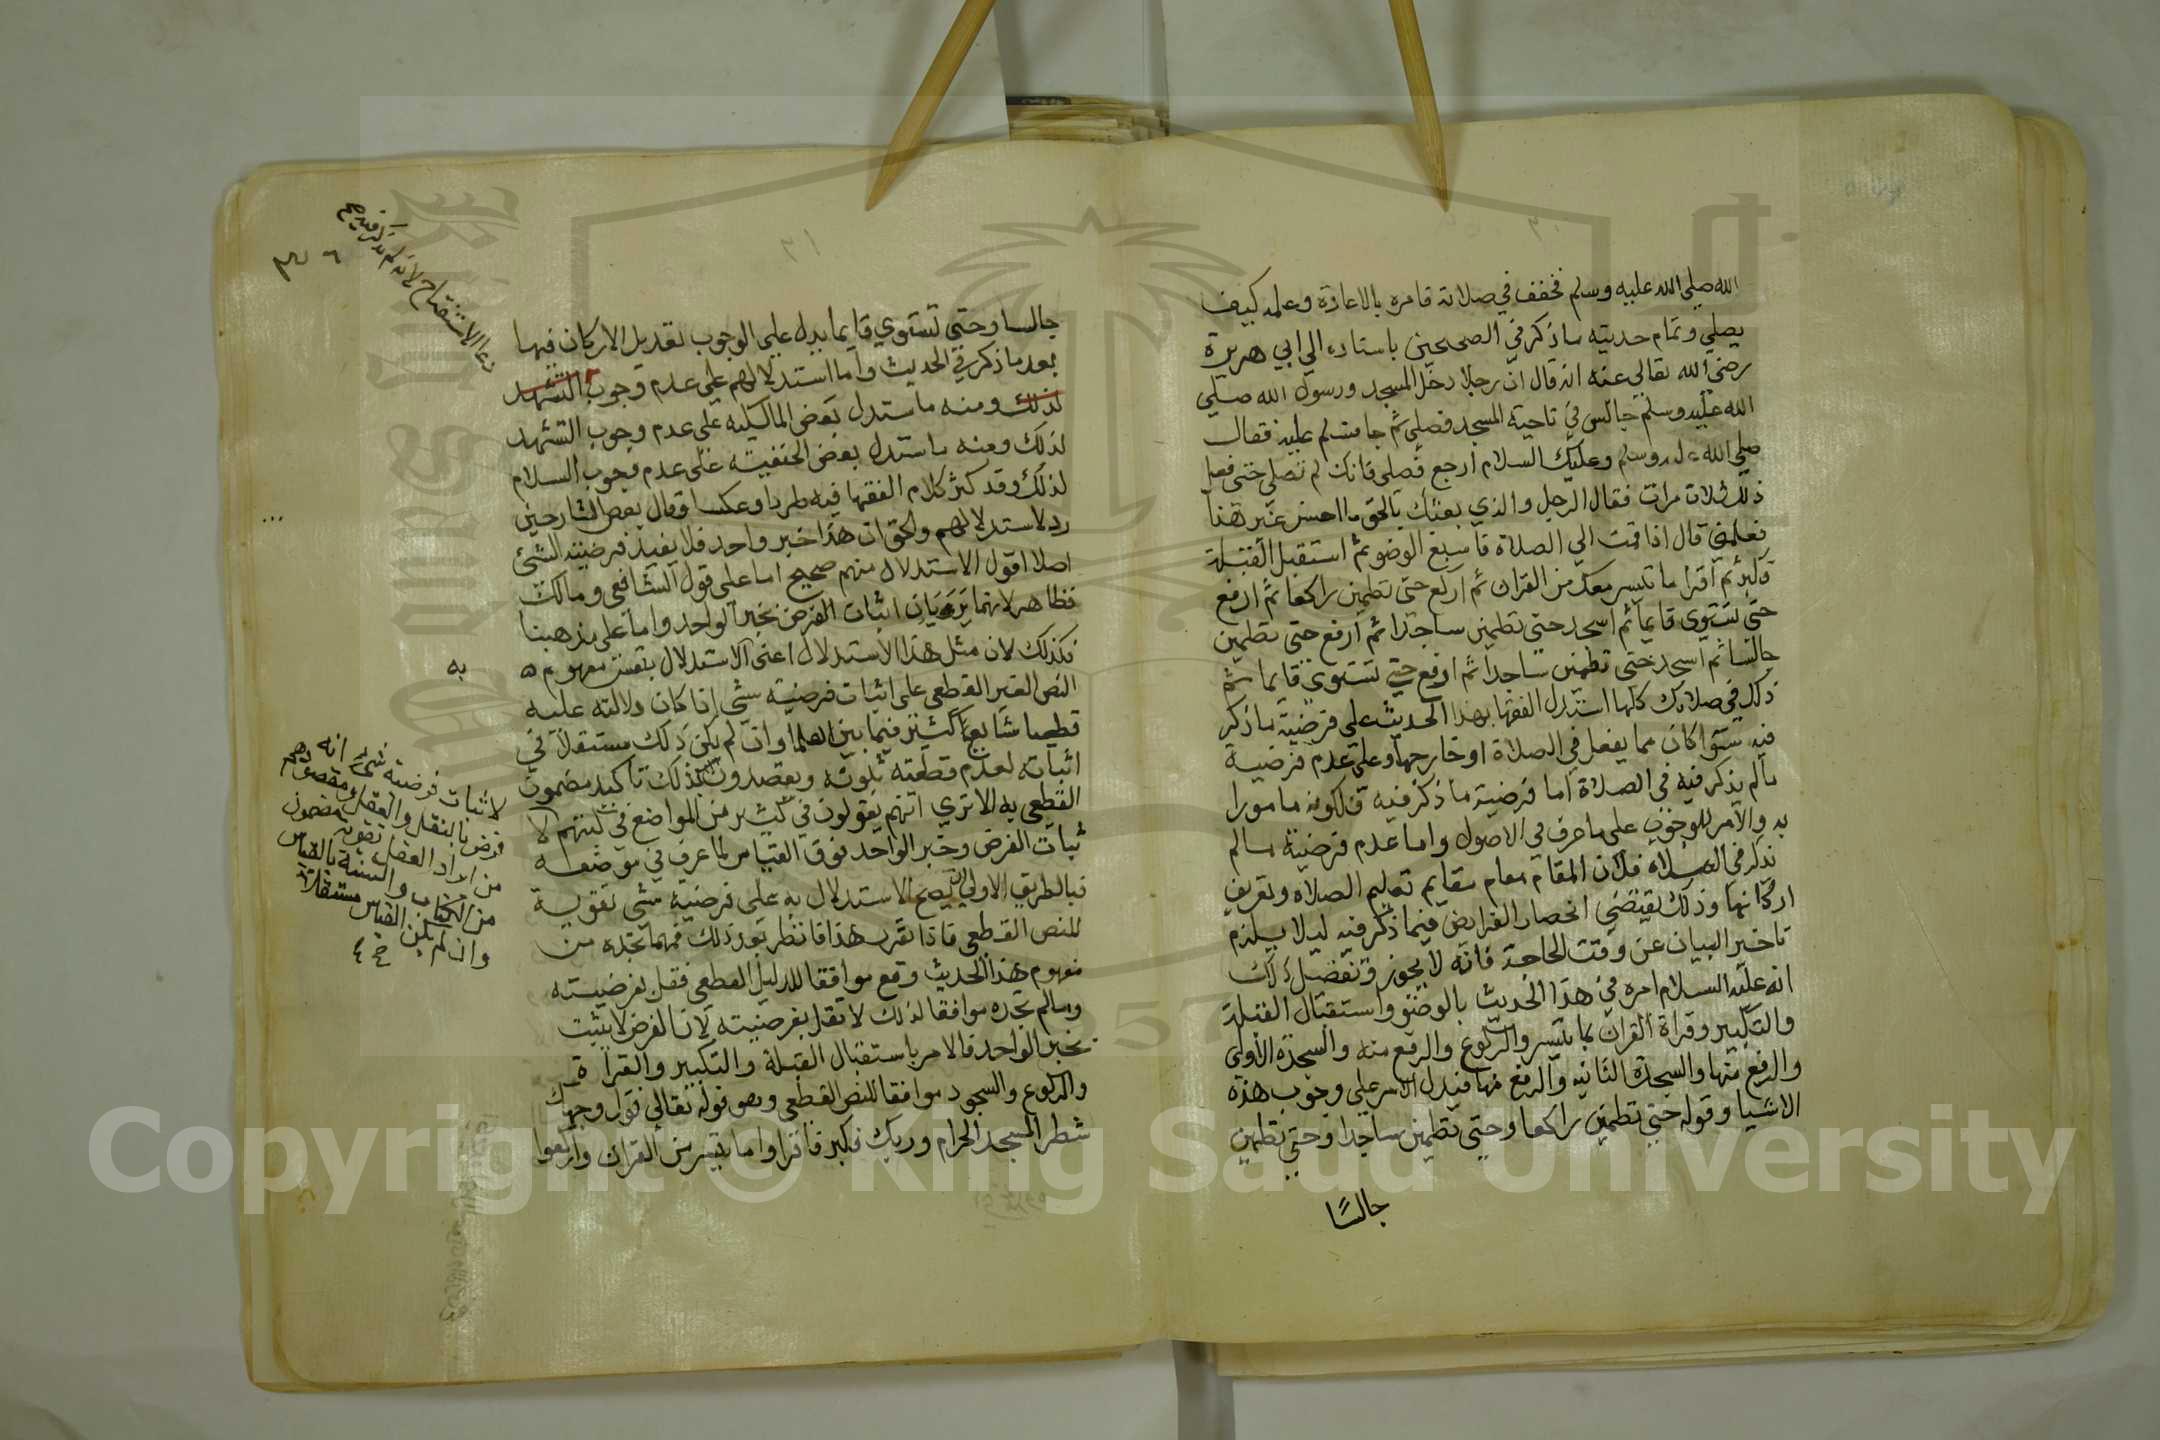 الله صلي الله عليه وسلم فخفف في صلاته فامره بالاعادة وعلمه كيف
يصلي وتمام حديثه ما ذكر في الصحيحين باسناده الي ابي هريرة
رضي الله تعالي عنه انه قال ان رجلا دخل المسجد ورسول الله صلي
الله عليه وسلم جالس في ناحية المسجد فصلي ثم جا فسلم عليه فقال
صلي الله عليه وسلم وعليك السلام ارجع فصلي فانك لم تصلي حتي فعل
ذلك ثلاث مرات فقال الرجل والذي بعثك بالحق ما احسن غير هذا
فعلمني قال اذا قمت الي الصلاة فاسبغ الوضو ثم استقبل القبلة
فكبر ثم اقرا ما تيسر معك من القران ثم اركع حتي تطمين راكعا ثم ارفع
حتي تستوي قايما ثم اسجد حتي تطمين ساجدا ثم ارفع حتي تطمين
جالسا ثم اسجد حتي تطمين ساجدا ثم ارفع حتي تستوي قايما ثم
ذلك في صلاتك كلها استدل الفقها بهذا الحديث علي فرضية ما ذكر
فيه سوا كان مما يفعل في الصلاة او خارجها وعلي عدم فرضية
مالم يذكر فيه في الصلاة اما فرضية ما ذكر فيه فلكونه مامورا
به والامر للوجوب علي ما عرف في الاصول واما عدم فرضية مالم
يذكر في الصلاة فلان المقام مقام تعليم الصلاة وتعريف
اركانها وذلك يقتضي انحصار الفرايض فيما ذكر فيه ليلا يلزم
تاخير البيان عن وقت الحاجة فانه لا يجوز وتفصيل ذلك
انه عليه السلام امره في هذا الحديث بالوضو واستقبال القبلة
والتكبير وقراة القران بما تيسر والركوع والرفع منه والسجدة الاولي
والرفع منها والسجدة الثانيه والرفع منها فيدل الامر علي وجوب هذه
الاشيا وقوله حتي تطمين راكعا وحتي تطمين ساجدا وحتي تطمين
جالسًا
جالسا وحتي تستوي قايما يدل علي الوجوب تعديل الاركان فيها
بعد ما ذكر في الحديث واما استدلالهم علي عدم وجوب التشهد
لذلك ومنه ما ستدل بعض المالكيه علي عدم وجوب التشهد
لذلك ومنه ما ستدل بعض الحنفيته علي عدم وجوب السلام
لذلك وقد كثر كلام الفقها فيه طردا وعكسا وقال بعض الشارحين
رد لاستدلالهم والحق ان هذا خبر واحد فلا يفيد فرضية الشئ
اصلا اقول الاستدلال منهم صحيح اما علي قول الشافعي ومالك
فظاهر لانهما يريان اثبات الفرض بخبر الواحد واما علي مذهبنا
فكذلك لان مثل هذا الاستدلال اعني الاستدلال بنفس مفهوم
النص الغير القطعي علي اثبات فرضية شي اذا كان دلالته عليه
قطعيا شايع كثير فيما بين العلما وان لم يكن ذلك مستقلا في
اثباته لعدم قطعته ثبوته ويقصدون بذلك تاكيد مضمون
القطعي به الا تري انهم يقولون في كثير من المواضع في كتبهم لا
ثبات الفرض وخبر الواحد فوق القياس لما عرف في موضعه
فبالطريق الاولي يصح الاستدلال به علي فرضية شي تقوية
للنص القطعي فاذا تقرر هذا فانظر بعد ذلك فمهما تجده من
مفهوم هذا الحديث وقع موافقا للدليل القطعي فقل بفرضيته
ومالم تجده موافقا لذلك لا تقل بفرضيته لان الفرض لا يثبت
بخبر الواحد فالامر باستقبال القبلة والتكبير والقراة
والركوع والسجود موافقا للنص القطعي وهو قوله تعالي فول وجهك
شطر المسجد الحرام وربك فكبر فاقراوا ما تيسر من القران واركعوا
به
لاثبات فرضية شئ انه
فرض بالنقل والعقل ومقصودهم
من ايراد العقل تقوية مضمون
من الكتاب والسنة بالقياس
وان لم يكن القياس مستقلا